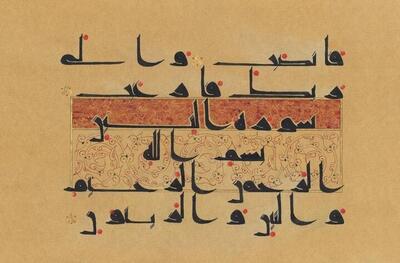 فانصب والى
ربك فارغب
سورة التين
بسم الله
الرحمن الرحيم
والتين والزيتون